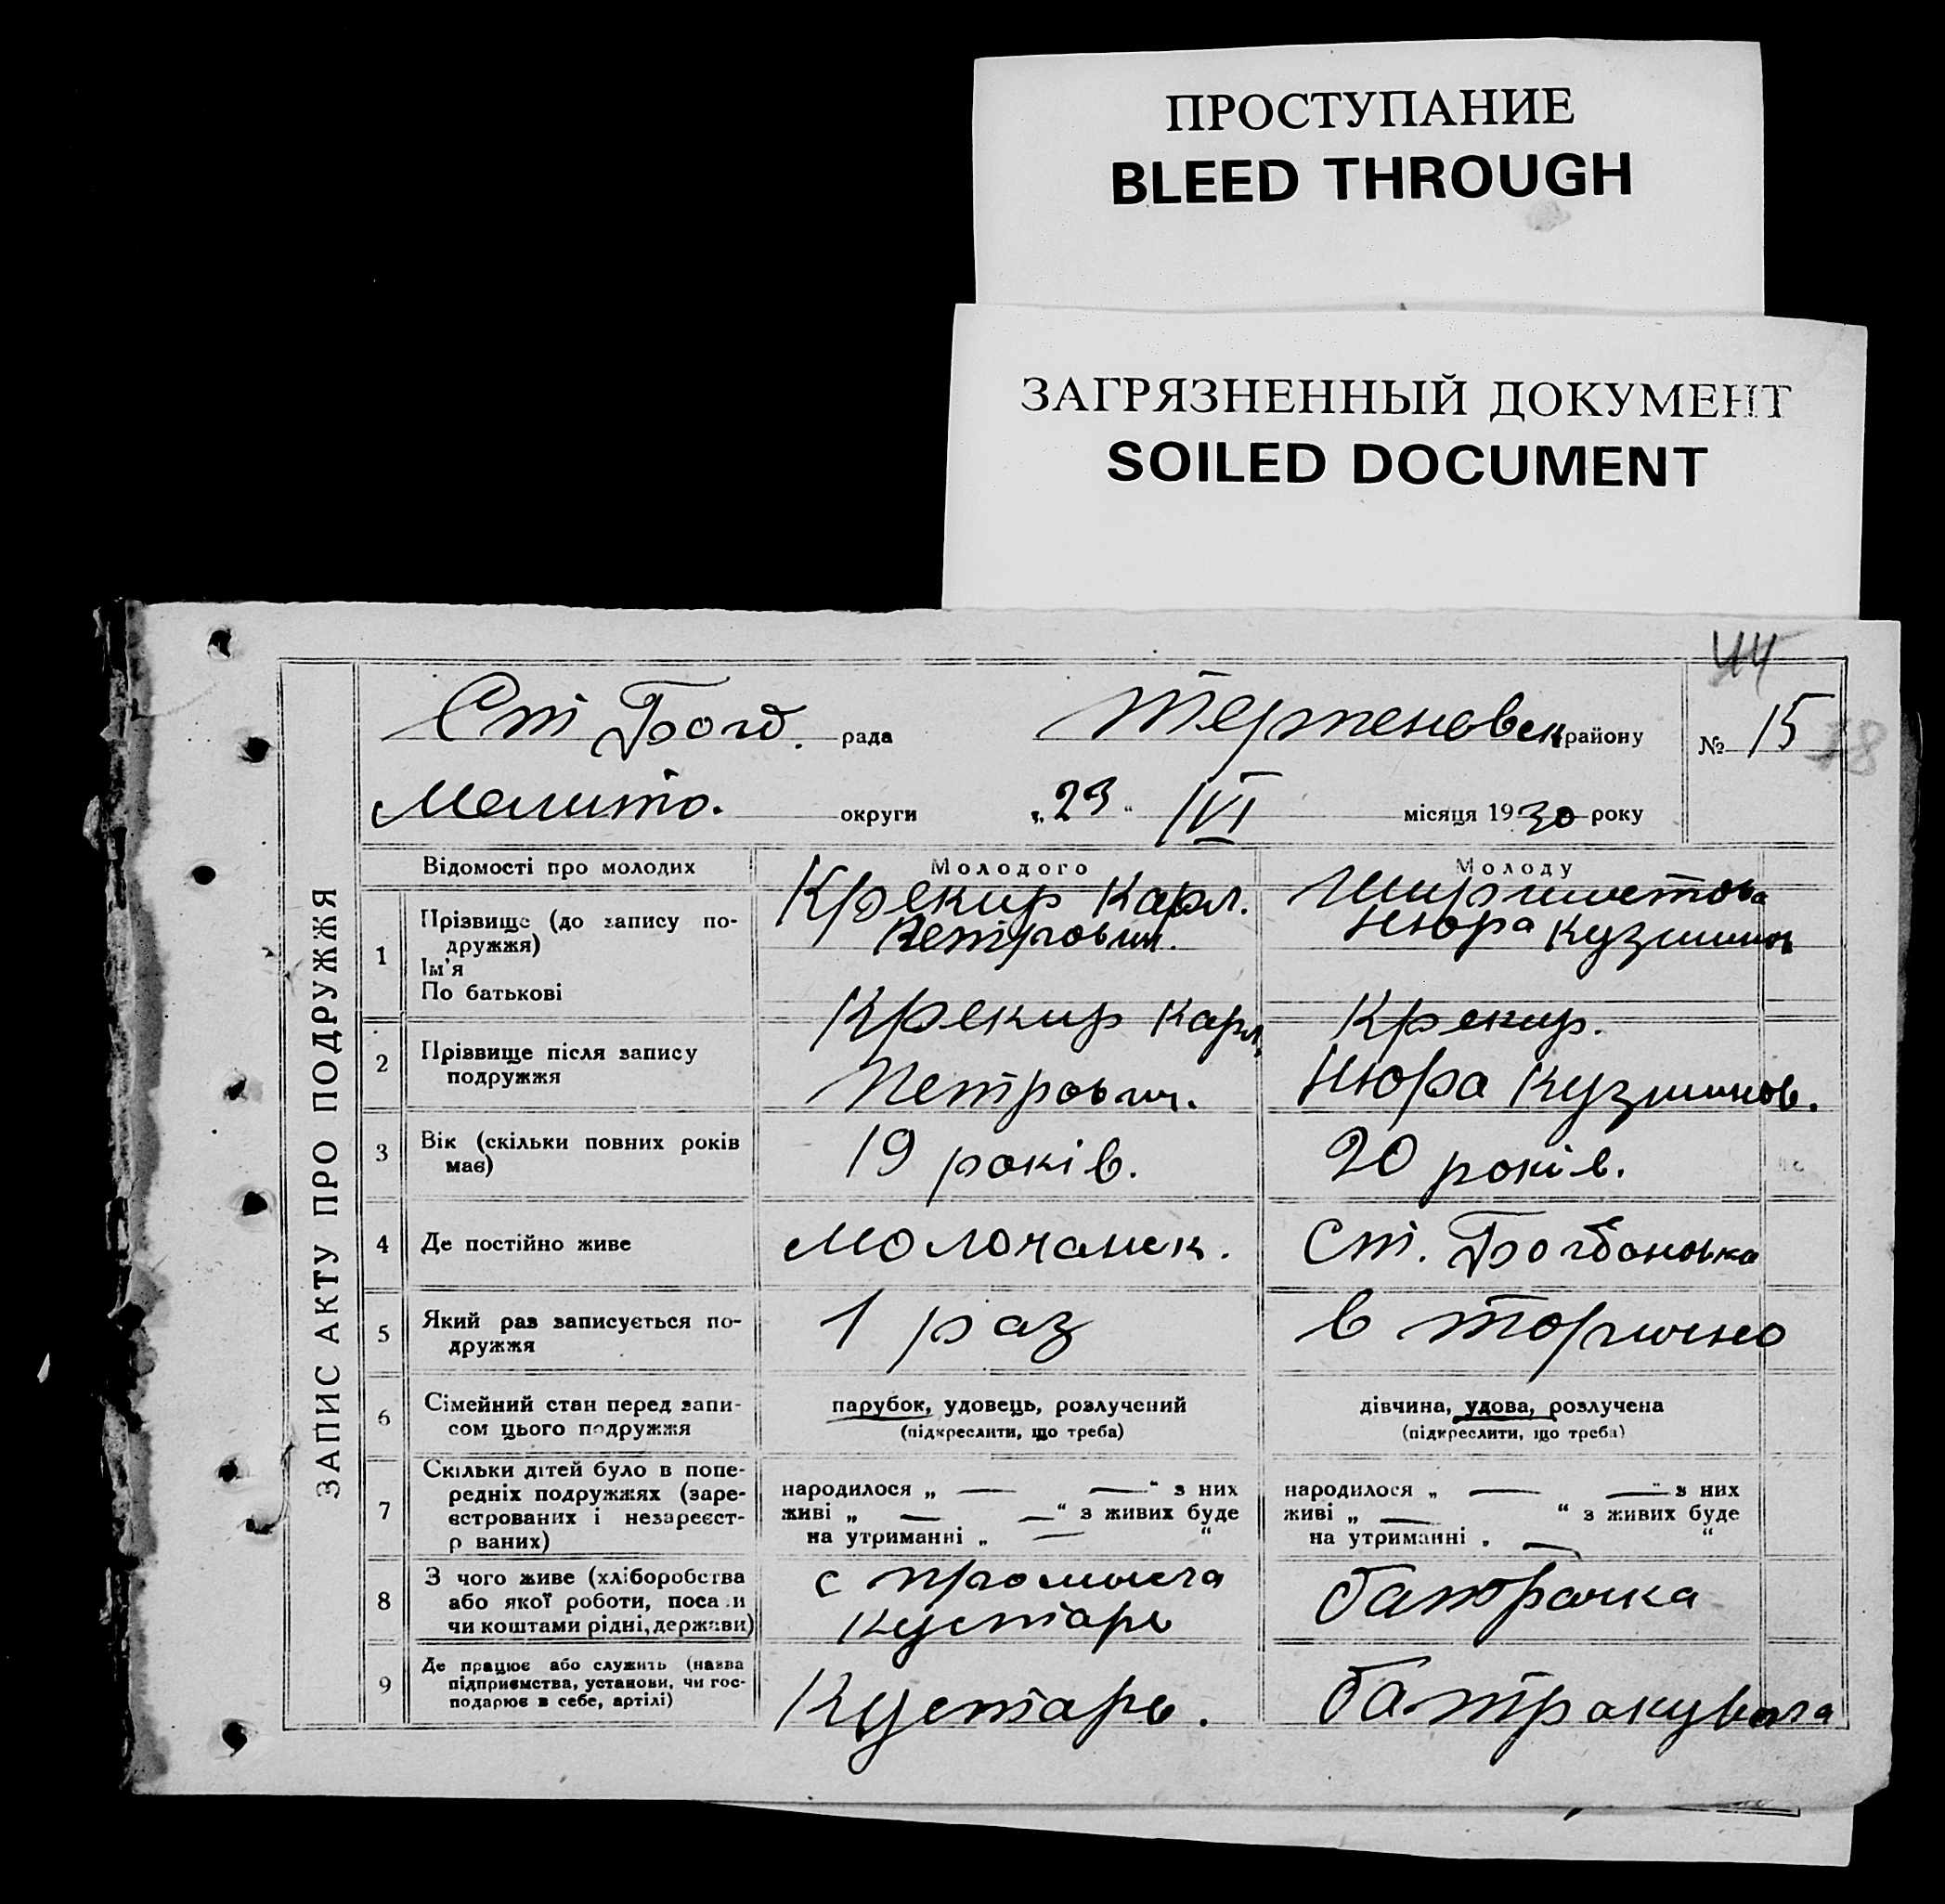 ПРОСТУПАНИЕ
BLEED THROUGH
ЗАГРЯЗНЕННЫЙ ДОКУМЕНТ
SOILED DOCUMENT
44
ЗАПИС АКТУ ПРО ПОДРУЖЖЯ
Ст Богд. рада Терпеновськ району № 15 38
Мелито. округи „23“ /VI місяця 1930 року
Відомості про молодих Молодого Молоду
1 Прізвище (до запису по- Крекир Карл.
дружжя) Петрович. Нюра Кузминов
Ім'я
По батькові
Крекир Карл. Крекир.
2 Прізвище після запису
подружжя Петрович. Нюра Кузминов.
3 Вік (скільки повних років 19 років. 20 років.
має)
4 Де постійно живе Молочанск. Ст. Богдановка
5 Який раз записується по- 1 раз вторично
дружжя
6 Сімейний стан перед запи- парубок, удовець, розлучений дівчина, удова, розлучена
сом цього подружжя (підкреслити, що треба) (підкреслити, що треба)
7 Скільки дітей було в попе-
редніх подружжях (заре- народилося „ — — “ з них народилося „ — — “ з них
єстрованих і незареєст- живі „ — — “ з живих буде живі „ — “ з живих буде
р ваних) на утриманні „ — “ на утриманні „ — “
8 З чого живе (хліборобства с промысла батрачка
або якої роботи, поса и кустарь
чи коштами рідні, держави)
9 Де працює або служить (назва
підприємства, установи, чи гос- Кустарь. батракувала
подарює в себе, артілі)